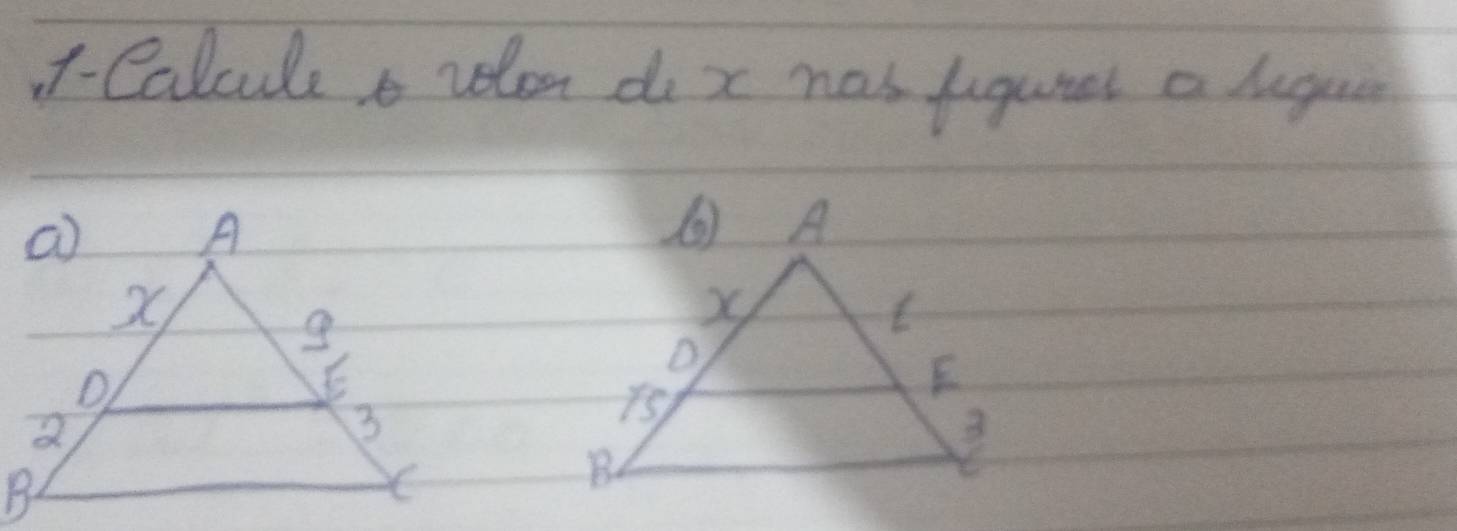 1-Calcule o valor de x nas figuras a seguir
a) b)
A A
x 9 x
D E D E
2 3 15 3
B C B C